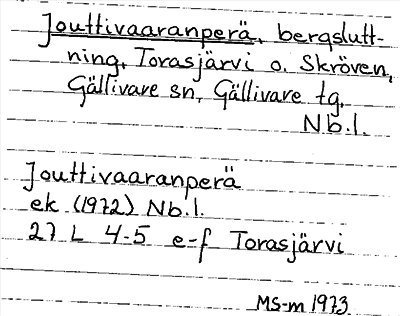 Jouttivaaranperä, bergslutt-
ning, Torasjärvi o. Skröven,
Gällivare sn, Gällivare tg,
Nb.l.
Jouttivaaranperä
ek (1972) Nb.l.
27 L 4-5 e-f Torasjärvi
MS-m 1973